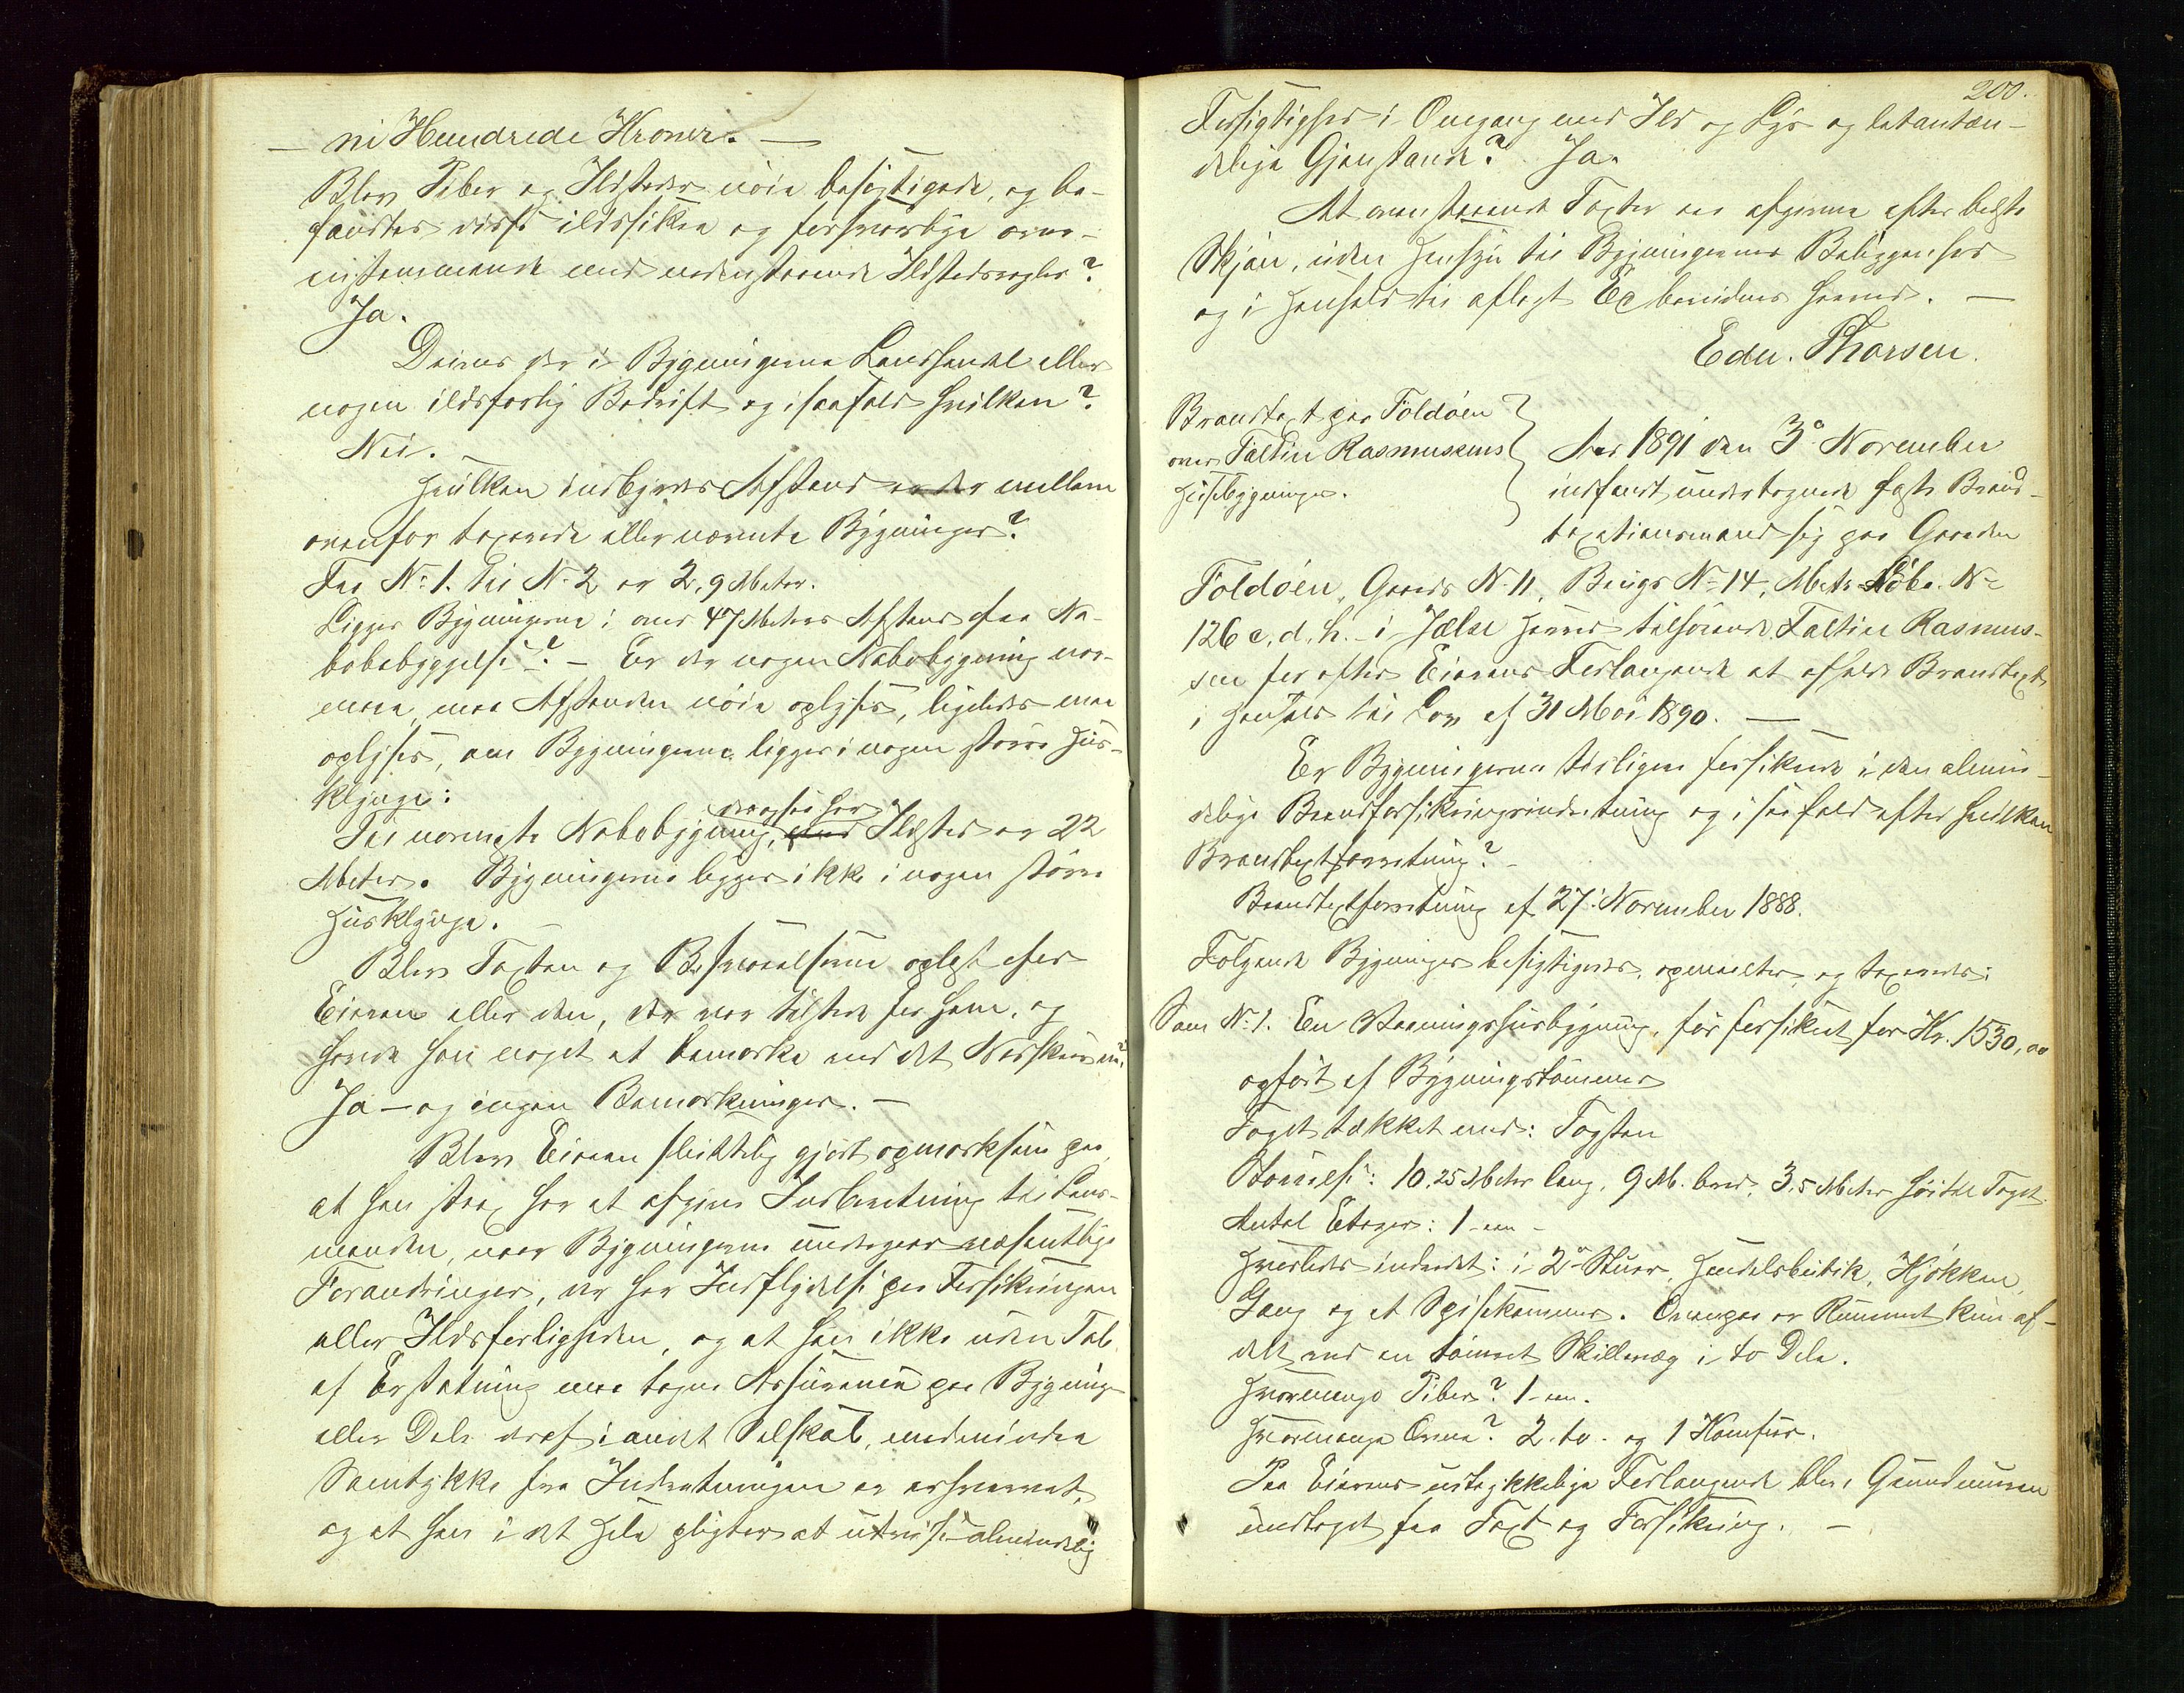 — ni Hundrede Kroner. —
Blev Piber og Ildsteder nöie besigtigede, og be-
fandtes disse ildssikre og forsvarlige over-
ensstemmende med nedenstaaende Ildstedsregler?
Ja.
Drives der i Bygningerne Landhandel eller
nogen ildsfarlig Bedrift og isaafald hvilken?
Nei.
Hvilken indbyrdes Afstand er der mellem
ovenfor taxerede eller nævnte Bygninger?
Fra No 1. til No 2 er 2,9 Meter.
Ligger Bygningerne i over 47 Meters Afstand fra Na-
bobebyggelse? – Er der nogen Nabobygning nær-
mere, maa Afstanden nöie oplyses, ligeledes maa
oplyses, om Bygningerne ligger i nogen större Hus-
klynge:
Til nærmeste Nabobygning, som ogsaa har Ildsted er 22
Meter. Bygningerne ligger ikke i nogen större
Husklynge.
Blev Taxten og Beskrivelserne oplæst for
Eieren eller den, der var tilstede for ham, og
havde han noget at bemærke ved det Nedskrevne?
Ja – og ingen Bemærkninger. –
Blev Eieren skriftlig gjort opmærksom paa,
at han strax har at afgive Indberetning til Lens-
manden, naar Bygningerne undergaar væsentlige
Forandringer, der har Indflydelse paa Forsikringen
eller Ildsfarligheden, og at han ikke uden Tab
af Erstatning maa tegne Assurance paa Bygning
eller Dele deraf i andet Selskab, medmindre
Samtykke fra Indretningen er erhvervet,
og at han i det Hele pligter at udvise almindelig
200.
Forsigtighed i Omgang med Ild og Lys og letantæn-
delige Gjenstande? Ja.
At ovenstaaende Taxter ere afgivne efter bedste
Skjön, uden Hensyn til Bygningernes Beliggenhed
og i Henhold til aflagt Ed bevidnes herved. —
Edv. Thorsen.
Brandtaxt paa Foldöen
over Faltin Rasmussens
Husebygninger.
Aar 1891 den 3o November
indfandt undertegnede faste Brand-
taxationsmænd sig paa Gaarden
Foldöen, Gaards No 11, Brugs No 14, Matr. Löbe No
126 c, d, h. i Jælse Herred tilhörende Faltin Rasmus-
sen for efter Eierens Forlangende at afholde Brandtaxt
i Henhold til Lov af 31 Mai 1890. —
Er Bygningerne tidligere forsikrede i den almin-
delige Brandforsikringsindretning og i saafald efter hvilken
Brandtaxtforretning? –
Brandtaxtforretning af 27. November 1888.
Fölgende Bygninger besigtigedes, opmaaltes og taxeredes:
Som No 1. En Vaaningshusbygning, för forsikret for Kr. 1530,00
opfört af Bygningstömmer
Taget tækket med: Tagsten
Störrelse: 10,25 Meter lang, 9 M. bred, 3,5 Meter höi til Taget.
Antal Etager: 1 – een –
Hvorledes indredet: i 2o Stuer, Handelsbutik, Kjökken,
Gang og et Spisekammer. Ovenpaa er Rummet kun af-
delt med en tömret Skillevæg i to Dele.
Hvormange Piber? 1 – een.
Hvormange Ovne? 2. to. og 1 Komfur.
Paa Eierens udtrykkelige Forlangende blev Grundmuren
undtaget fra Taxt og Forsikring. –